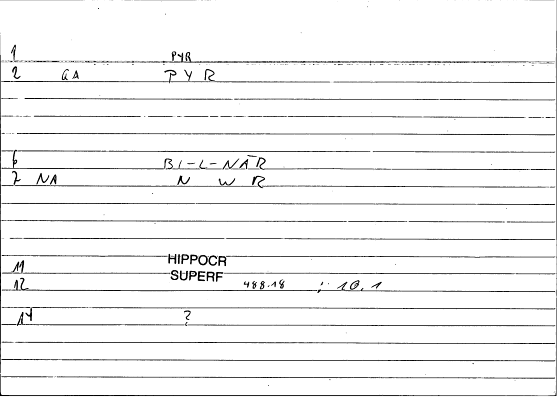 1 PYR
2 GA P Y R
6 BI-L-NĀR
7 NA N W R
11 HIPPOCR
12 SUPERF 488.18 ; 10.1
14 ?